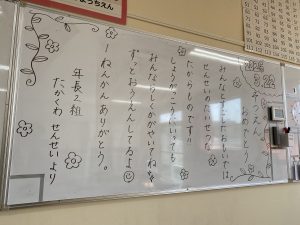 ようちえん
そつえん
おめでとう
みんなとすごしたおもいでは、
せんせいのたいせつな
たからものです!!
しょうがっこうにいっても
みんならしくかがやいてね
ずっとおうえんしてるよ
1ねんかんありがとう。
年長2組
たっかくわ せんせいより